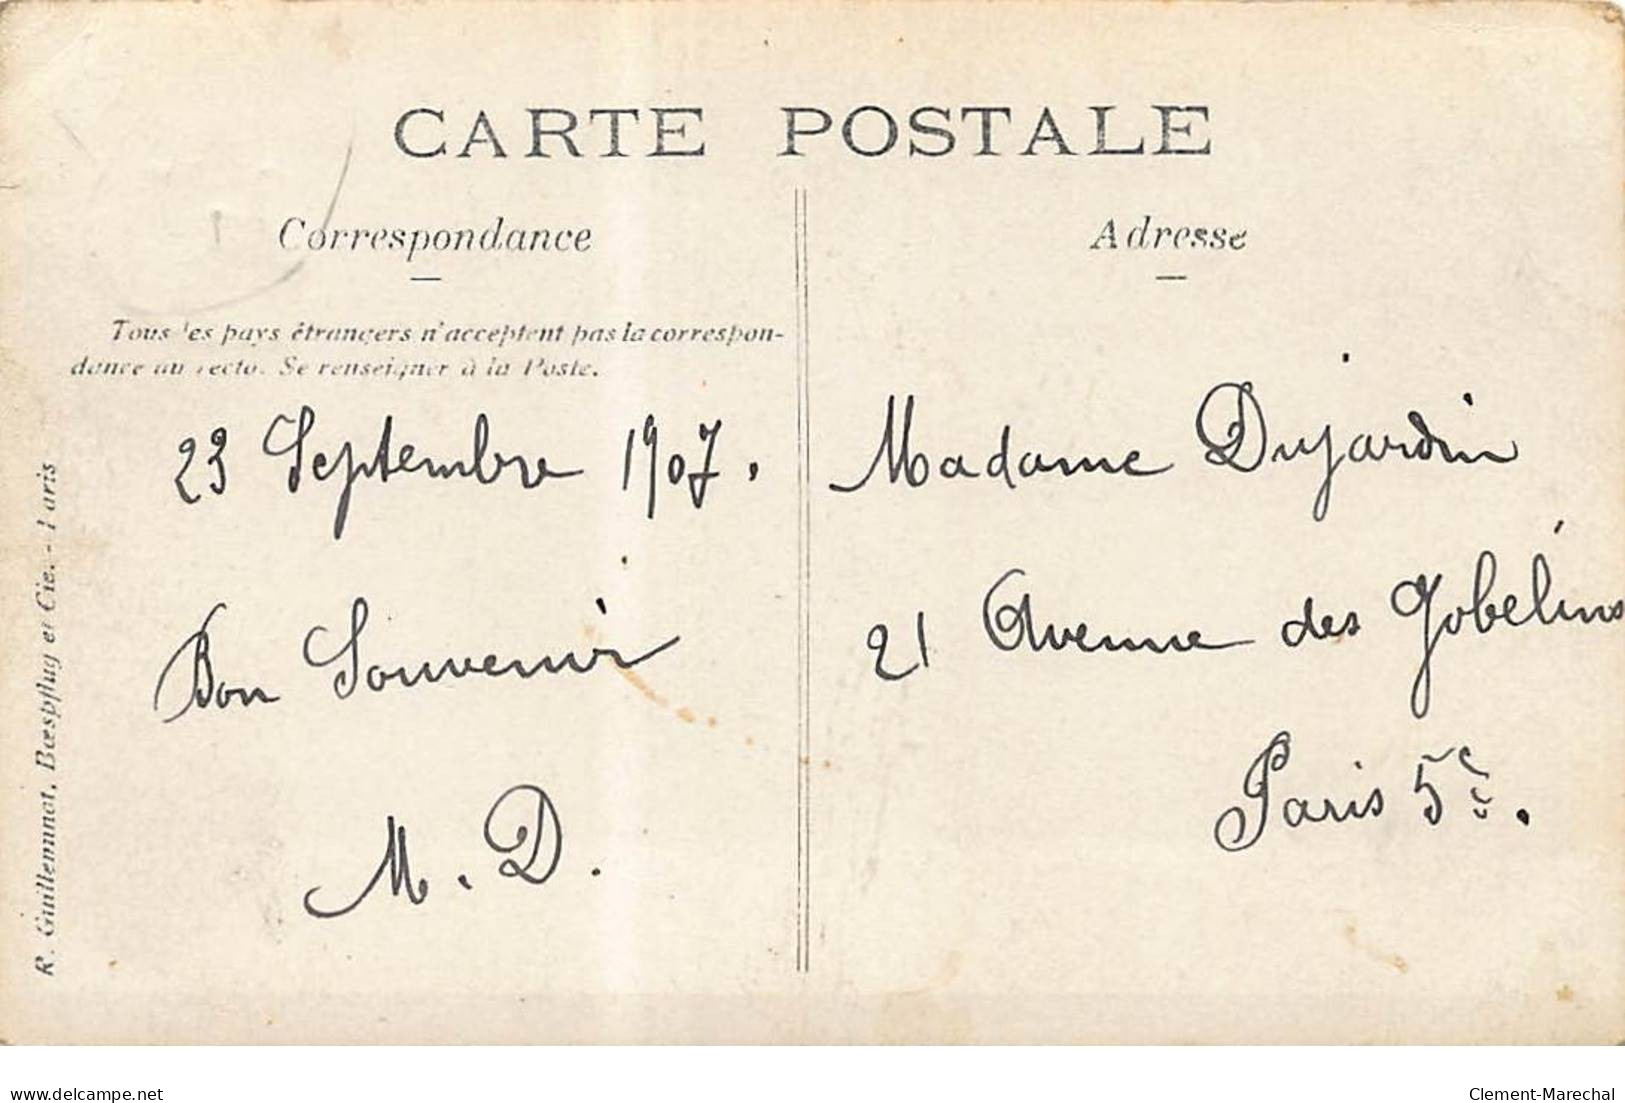 CARTE POSTALE
Correspondance
Tous les pays étrangers n'acceptent pas la correspon-
dance au recto. Se renseigner à la Poste.
23 Septembre 1907.
Bon Souvenir
M. D.
R. Guilleminot, Bœspflug et Cie. - Paris
Adresse
Madame Dujardin
21 Avenue des Gobelins
Paris 5e.
www.delcampe.net
Clement-Marechal